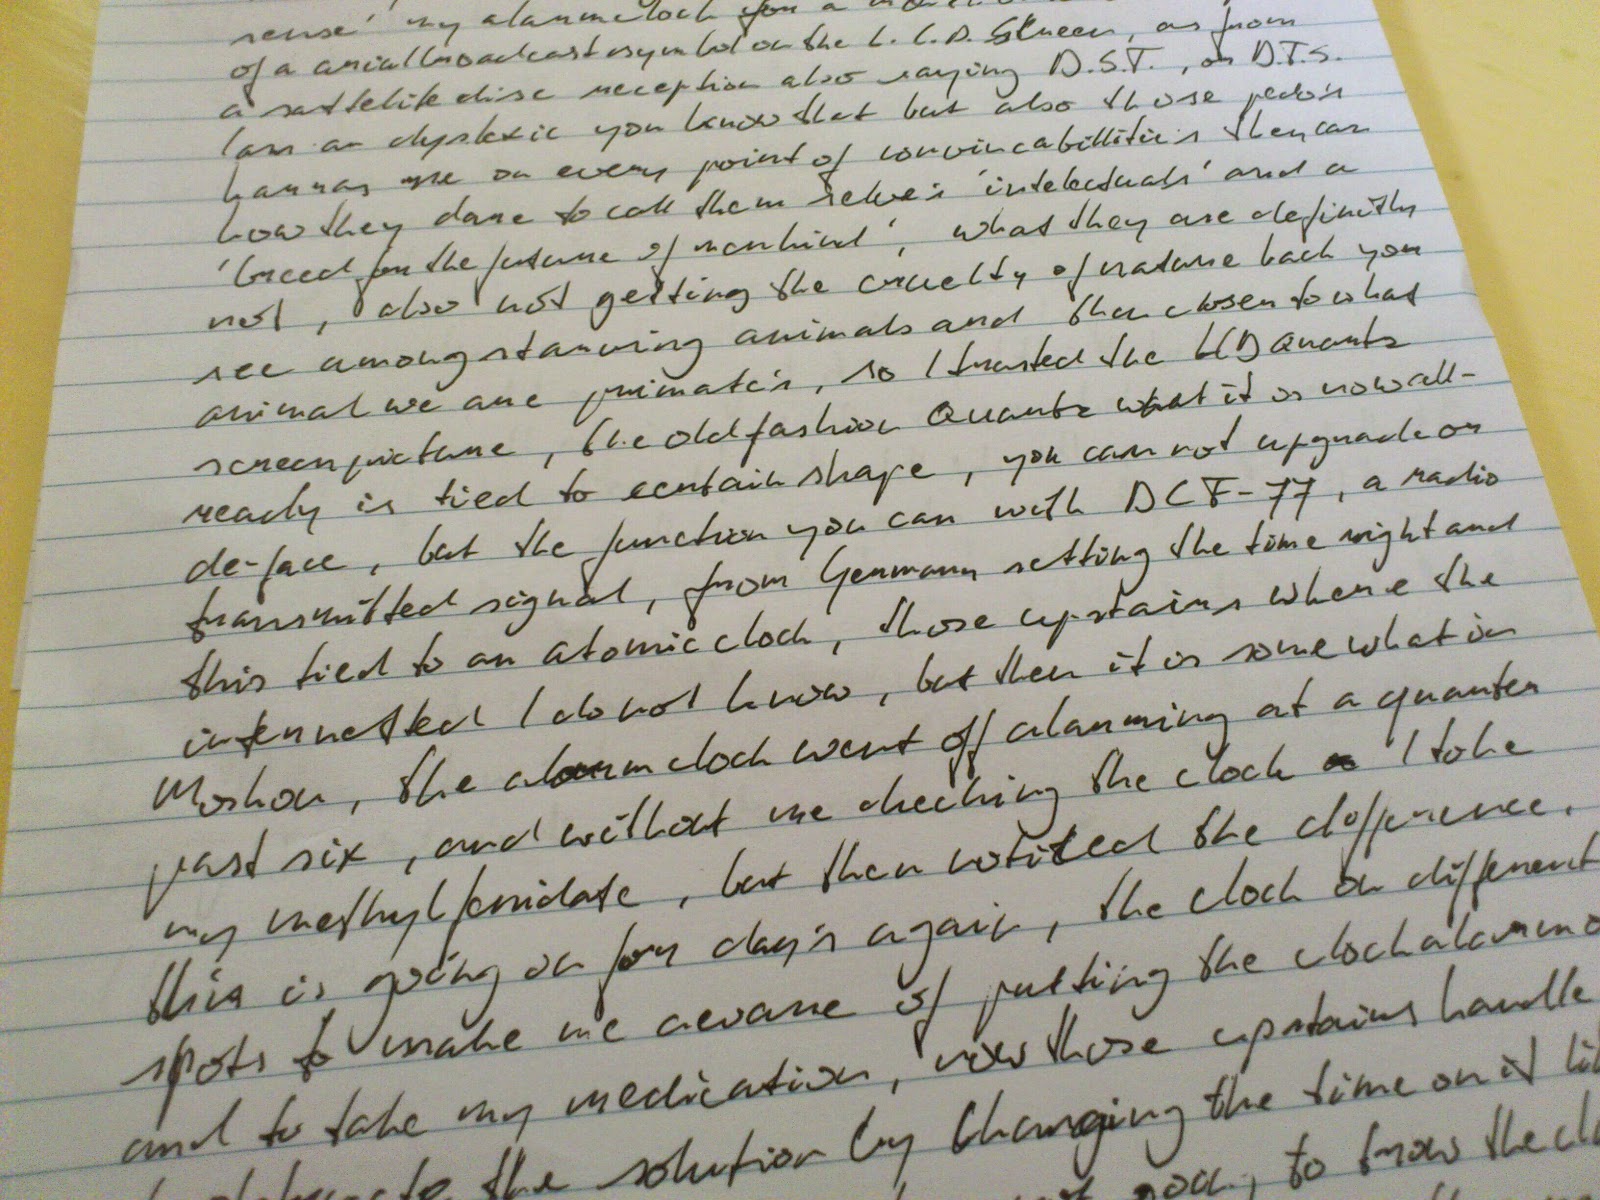 sense' my alarmclock for a
of a arialbroadcast asymbol on the L.C.D. Screen, as from
a sattelite disc reception also saying D.S.T., or D.T.S.
I am an dyslexic you know that but also those pedo's
harras me on every point of convincabillitie's they can
how they dare to call them selve's 'intelectuals' and a
'breed for the future of mankind', what they are definitly
not, also not getting the cruelty of nature back you
see among starving animals and then closen to what
animal we are primate's, so I trusted the LCD Quartz
screen picture, the old fashion Quartz what it is now all-
ready is tied to certain shape, you can not upgrade or
de-face, but the function you can with DCF-77, a radio
transmitted signal, from Germany setting the time right and
this tied to an atomic clock, those upstairs where the
internetted I do not know, but then it is some what in
Moskou, the alarmclock went off alarming at a quarter
past six, and without me checking the clock I take
my methylfenidate, but then notited the difference.
this is going on for day's again, the clock on different
spots to make me aware of putting the clock alarm
and to take my medication, now those upstairs handle
the solution by changing the time on it
to know the